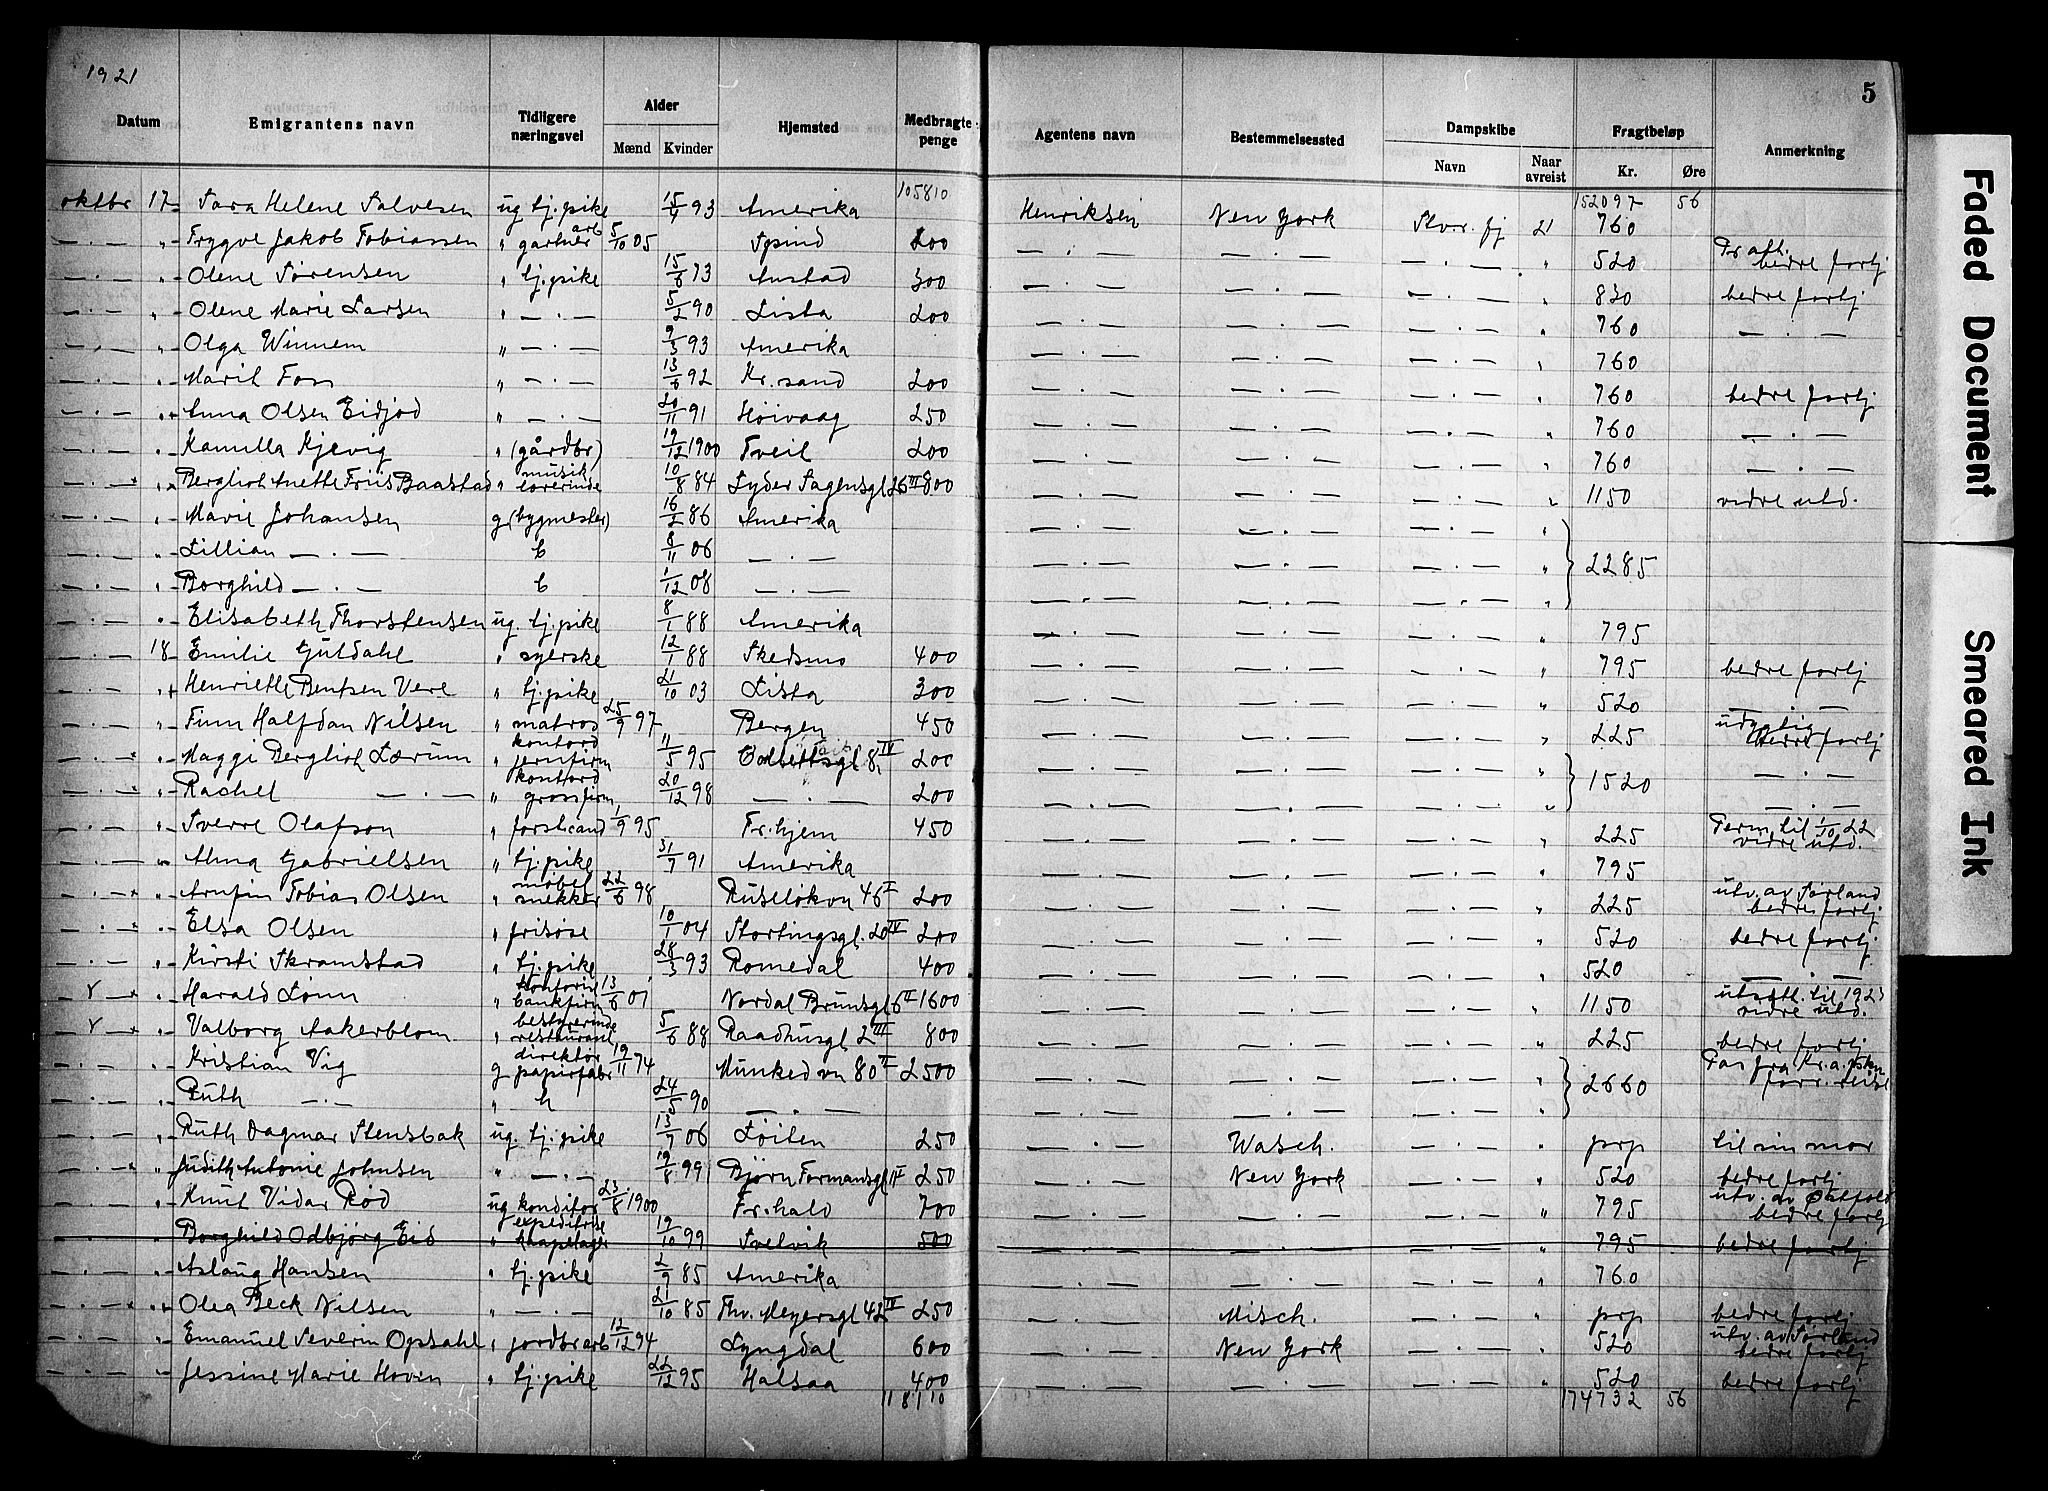 1921
5
Datum | Emigrantens navn | Tidligere næringsvei | Alder Mænd Kvinder | Hjemsted | Medbragte penge | Agentens navn | Bestemmelsessted | Dampskibe Navn | Naar avreist | Fragtbeløp Kr. Øre | Anmerkning
105810 | 152097 56
oktbr 17 Sara Helene Salvesen | ug tj.pike | 15/4 93 | Amerika | Henriksen | New York | Stvr. fj | 21 | 760
— . — " Trygve Jakob Tobiassen | " gartner arb | 5/10 05 | Spind | 200 | — . — | — . — | — . — | " | 520 | bedre fortj
— . — " Olene Sørensen | " tj.pike | 15/6 73 | Austad | 300 | — . — | — . — | — . — | " | 830 | bedre fortj
— . — " Olene Marie Larsen | " — . — | 5/2 90 | Lista | 200 | — . — | — . — | — . — | " | 760 | — . —
— . — " Olga Winnem | " — . — | 9/3 93 | Amerika | — . — | — . — | — . — | " | 760
— . — " Marit Foss | " — . — | 13/6 92 | Kr.sand | 200 | — . — | — . — | — . — | " | 760 | bedre fortj
— . — " Anna Olsen Eidjod | " — . — | 20/11 91 | Høivaag | 250 | — . — | — . — | — . — | " | 760 | — . —
— . — " Kamilla Kjevig | " (gårdbr) | 19/12 1900 | Tveit | 200 | — . — | — . — | — . — | " | 760 | — . —
— . — " Bergliot Anette Friis Baastad | " musik lærerinde | 10/8 84 | Lyder Sagensgt 26 III | 800 | — . — | — . — | — . — | " | 1150 | vidre utd.
— . — " Marie Johansen | g (bygmester) | 16/2 86 | Amerika | — . — | — . — | — . — | "
— . — " Lillian — . — | b | 8/11 06 | — . — | — . — | — . — | — . — | " | 2285
— . — " Borghild — . — | b | 1/12 08 | — . — | — . — | — . — | — . — | "
— . — " Elisabeth Thorstensen | ug. tj.pike | 8/1 88 | Amerika | — . — | — . — | — . — | " | 795
— . — 18 Emilie Guldahl | " syerske | 12/1 88 | Skedsmo | 400 | — . — | — . — | — . — | " | 795 | bedre fortj
— . — " Henriette Bentsen Vere | " tj.pike | 21/10 03 | Lista | 300 | — . — | — . — | — . — | " | 520 | — . —
— . — " Finn Halfdan Nilsen | " matros | 25/9 97 | Bergen | 450 | — . — | — . — | — . — | " | 225 | bedre fortj
— . — " Maggi Bergliot Lærum | " kontord jernfirm | 11/5 95 | 8 IV | 200 | — . — | — . — | — . — | " | 1520 | — . —
— . — " Rachel — . — | " kontord grossfirm | 20/12 98 | — . — | 200 | — . — | — . — | — . — | " | — . —
— . — " Sverre Olafson | " forstkand | 1/9 95 | Tr.hjem | 450 | — . — | — . — | — . — | " | 225 | Perm. til 1/10 22 vidre utd.
— . — " Alma Gabrielsen | " tj.pike | 31/7 91 | Amerika | — . — | — . — | — . — | " | 795
— . — " Arnfin Tobias Olsen | " møbelsnekker | 22/6 98 | Ruseløkvn 46 I | 200 | — . — | — . — | — . — | " | 225 | utv. av Sørland bedre fortj
— . — " Elsa Olsen | " frisøse | 10/1 04 | Stortingsgt. 20 IV | 200 | — . — | — . — | — . — | " | 520 | bedre fortj
— . — " Kirsti Skramstad | " tj.pike | 28/3 93 | Romedal | 400 | — . — | — . — | — . — | " | 520 | — . —
— " — " Harald Lønn | " kontorist bankfirm | 13/6 01 | Nordal Brunsgt 6 II | 1600 | — . — | — . — | — . — | " | 1150 | utsatt. til 1923 vidre utd.
— " — " Valborg Aakerblom | " bestyrerinde restaurant | 5/6 88 | Raadhusgt 2 III | 800 | — . — | — . — | — . — | " | 225 | bedre fortj
— . — " Kristian Vig | g direktør papirfabr | 19/11 74 | Munkedvn 80 II | 2500 | — . — | — . — | — . — | " | 2660 | Pas fra Kr.a.
— . — " Ruth — . — | " h | 24/5 90 | — . — | — . — | — . — | — . — | "
— . — " Ruth Dagmar Stensbak | ug. tj.pike | 13/7 06 | Løiten | 250 | — . — | Wasch. | — . — | " | prp | til sin mor
— . — " Judith Antonie Johnsen | " — . — | 19/8 99 | Bjørn Farmansgt 1 V | 250 | — . — | New York | — . — | " | 520 | bedre fortj
— . — " Knut Vidar Rød | ug konditor | 23/8 1900 | Fr.hald | 700 | — . — | — . — | — . — | " | 795 | utv. av Østfold bedre fortj
— . — " Borghild Odbjørg Eid | " expeditrise kaapelager | 19/10 99 | Svelvik | 500 | — . — | — . — | — . — | " | 795 | bedre fortj
— . — " Aslaug Hansen | " tj.pike | 2/9 85 | Amerika | — . — | — . — | — . — | " | 760
— . — " Olea Beck Nilsen | " — . — | 21/10 85 | Thv. Meyersgt 42 IV | 250 | — . — | Misch. | — . — | " | prp | bedre fortj
— . — " Emanuel Severin Opsahl | " jordbrarb | 12/12 94 | Lyngdal | 600 | — . — | New York | — . — | " | 520 | utv. av Sørland bedre fortj
— . — " Jessine Marie Hoven | " tj.pike | 22/12 95 | Halsaa | 400 | — . — | — . — | — . — | " | 520 | bedre fortj
118110 | 174732 56
Faded Document
Smeared Ink